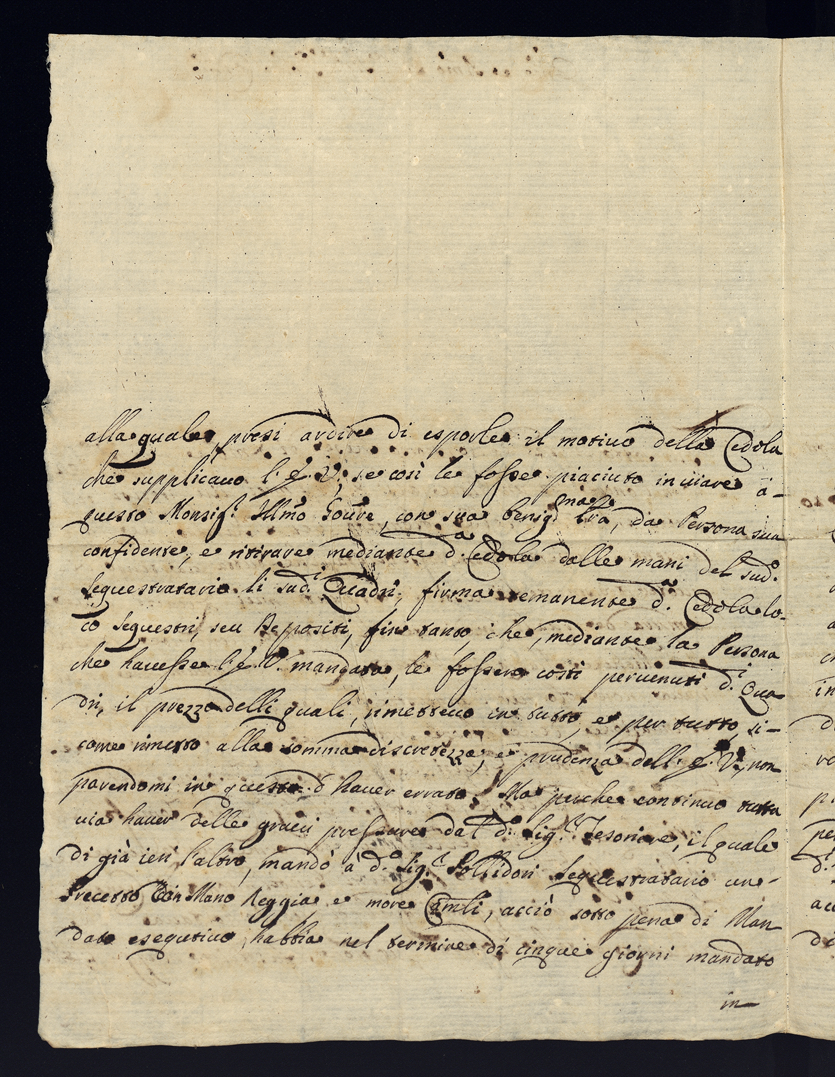 alla quale, presi ardire di esporle il motivo della Cedola
che supplicavo l'E. V., se così le fosse piaciuto inviare à
questo Monsig.r Ill.mo Gov.re, con sua benig.ma l'ra, da Persona sua
confidente, e ritirare mediante d.a Cedola dalle mani del sud.o
Sequestratario li sud.i Quadri, firma remanente d.a Cedola lo-
co sequestri, seu depositi, fin tanto, che, mediante la Persona
che havesse l'E. V. mandata, le fossero costì pervenuti d.i Qua-
dri, il prezzo delli quali, rimettevo in tutto, e per tutto, si-
come rimetto alla somma discretezza, e prudenza dell'E. V., non
parendomi in questo d'haver errato. Ma perche continuo tutta
via haver delle gravi pressure dal d.o Sig.r Tesoriere, il quale
di già ieri l'altro, mandò à d.o Sig.r Pollidori Sequestratario un
Precetto con Mano Reggia e more Camerali, acciò sotto pena di Man-
dato esequtivo, habbia nel termine di cinque giorni mandato
in-